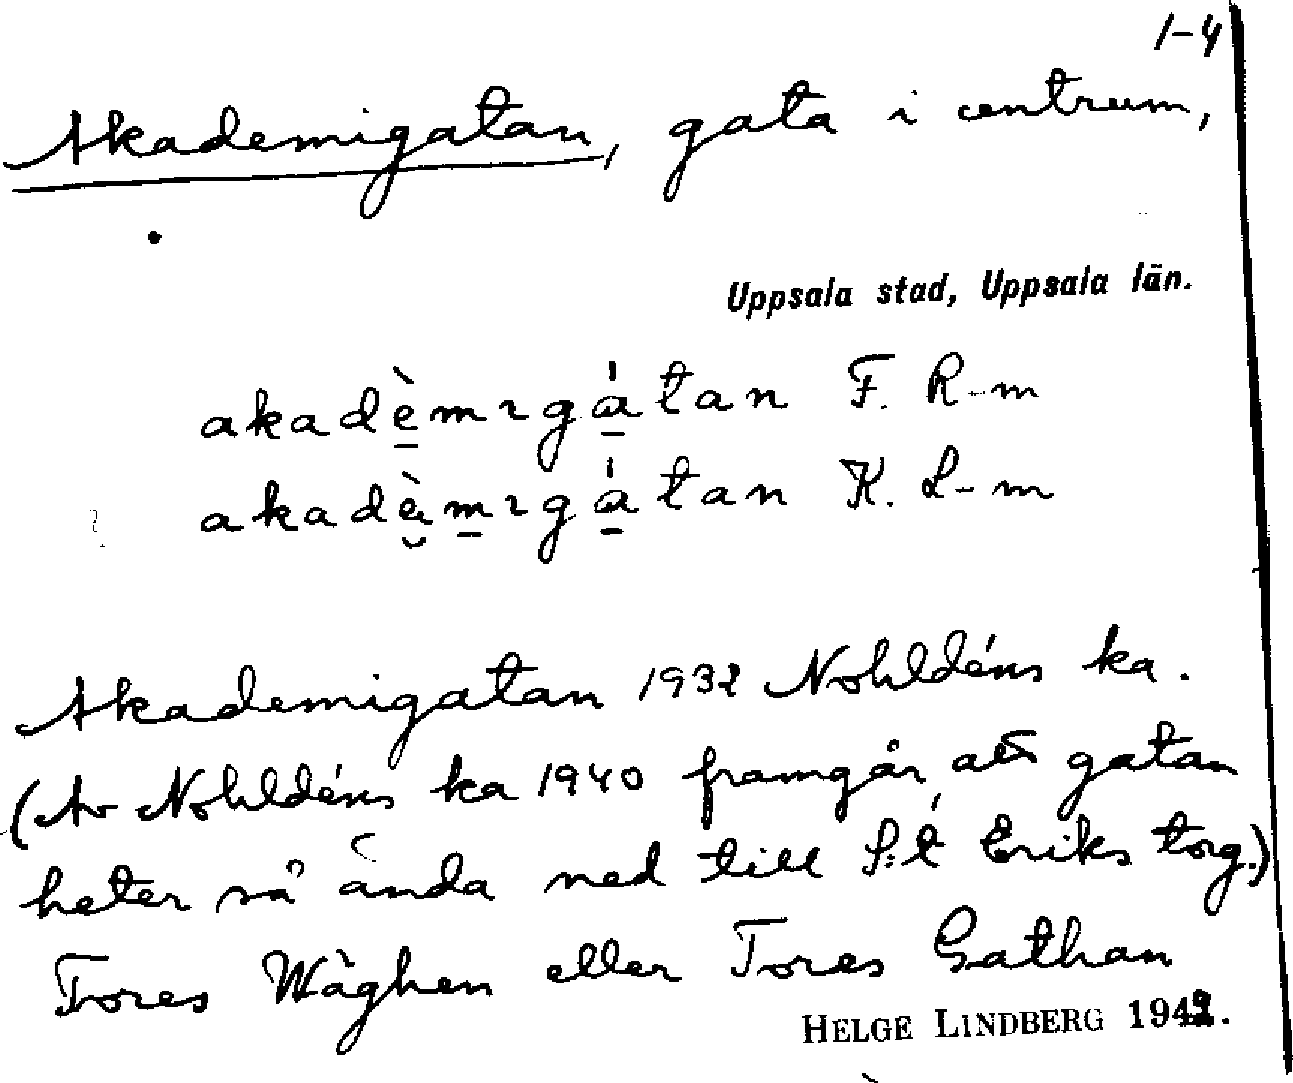 1-4
Akademigatan, gata i centrum,
Uppsala stad, Uppsala län.
akadèmıgátan F. R-m
akadèmıgátan K. L-m
Akademigatan 1932 Nohldéns ka.
(Av Nohldéns ka 1940 framgår, att gatan
heter så ända ned till S:t Eriks torg.)
Tores Wäghen eller Tores Gathan
HELGE LINDBERG 1942.